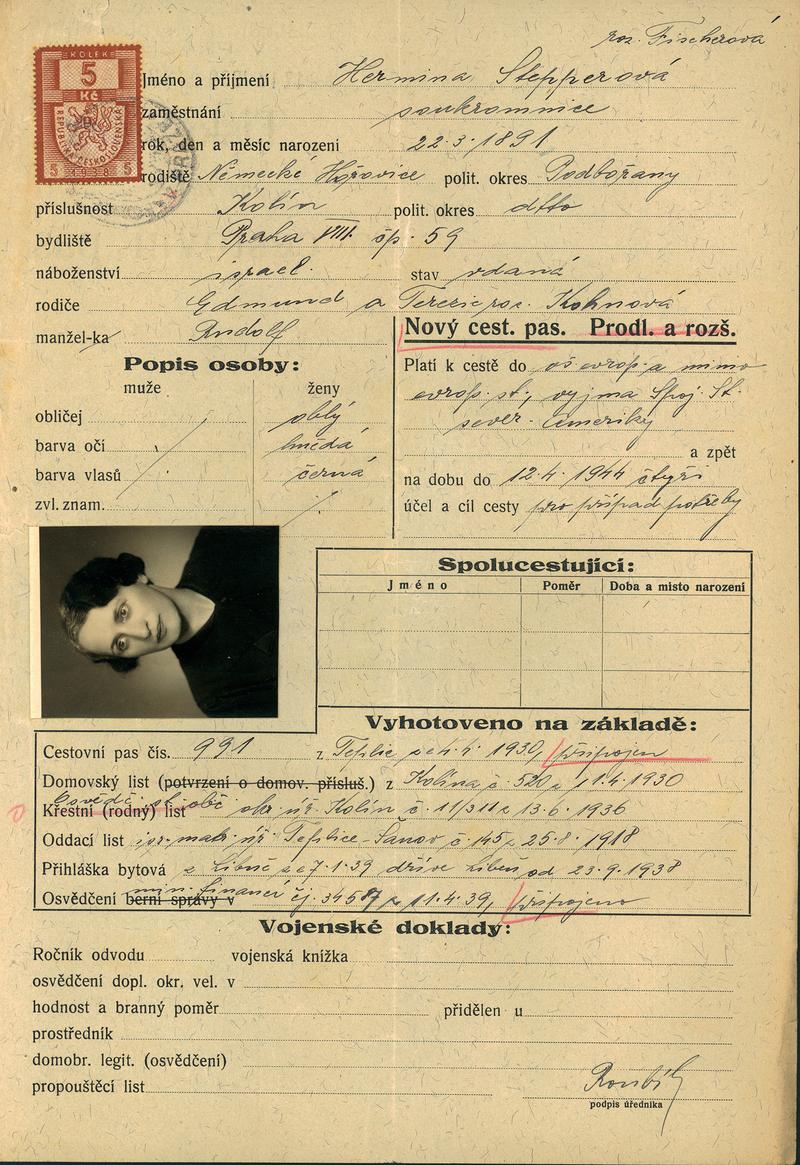 roz. Fischerová
KOLEK
5
Kč
REPUBLIKA ČESKOSLOVENSKÁ
5 1938 5
Jméno a příjmení Hermina Stepperová
zaměstnání soukromnice
rok, den a měsíc narození 22.3.1891
rodiště Německé Hořovice polit. okres Podbořany
příslušnost Kolín polit. okres dtto
bydliště Praha VIII. čp. 59
náboženství israel. stav vdaná
rodiče Edmund a Terezie roz. Kohnová
manžel-ka Rudolf
Nový cest. pas. Prodl. a rozš.
Popis osoby:
muže ženy
obličej oblý
barva očí hnědá
barva vlasů černá
zvl. znam. ./.
Platí k cestě do evrop. a mimo
evrop. st., vyjma Spoj. St.
sever. Ameriky
a zpět
na dobu do 12.4.1944 čtyři
účel a cíl cesty pro případ potřeby
Spolucestující:
Jméno Poměr Doba a místo narození
Vyhotoveno na základě:
Cestovní pas čís. 991 z Teplic 4.4.1930, připojen
Domovský list (potvrzení o domov. přísluš.) z Kolína č. 520 z 11.4.1930
Osvědč. st. obč.
Křestní (rodný) list okr. úř. Kolín č. 11/311 z 13.6.1936
Oddací list isr. matr. úř. Teplice-Šanov č. 145 z 25.8.1918
Přihláška bytová z Libně ze 7.1.39 dříve Libeň od 23.9.1938
Osvědčení berní správy v min. financí čj. 34587 z 11.4.39, připojeno
Vojenské doklady:
Ročník odvodu vojenská knížka
osvědčení dopl. okr. vel. v
hodnost a branný poměr přidělen u
prostředník
domobr. legit. (osvědčení)
propouštěcí list
podpis úředníka